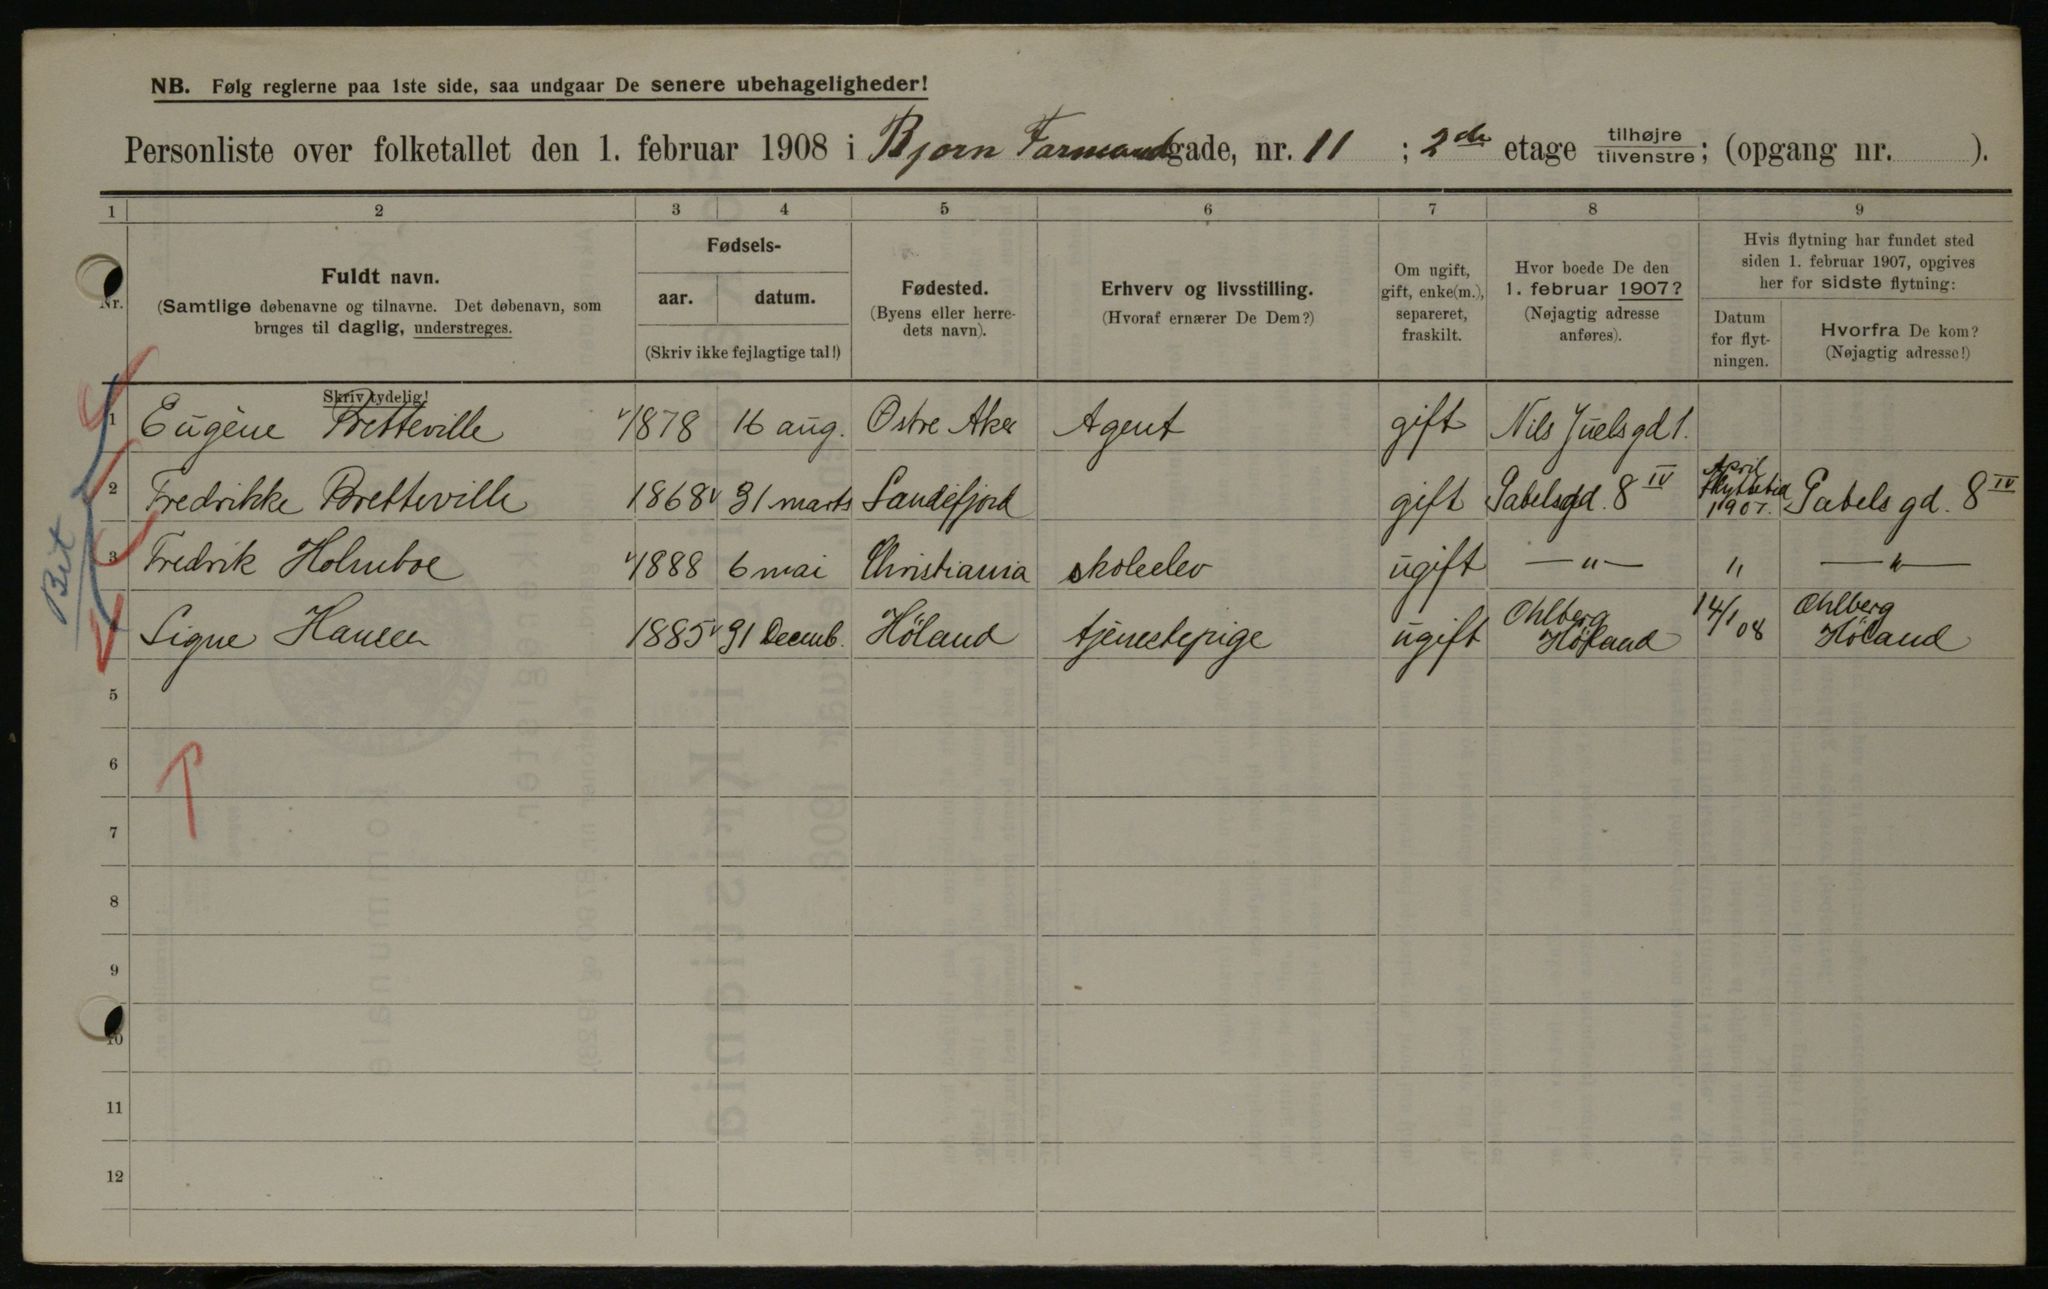 NB. Følg reglerne paa 1ste side, saa undgaar De senere ubehageligheder!
Personliste over folketallet den 1. februar 1908 i Bjørn Farmandsgade, nr. 11 ; 2de etage tilhøjre tilvenstre; (opgang nr. ).
1 2 3 4 5 6 7 8 9
Nr.
Fuldt navn.
(Samtlige døbenavne og tilnavne. Det døbenavn, som
bruges til daglig, understreges.
Skriv tydelig!
Fødsels-
aar. datum.
(Skriv ikke fejlagtige tal!)
Fødested.
(Byens eller herre-
dets navn).
Erhverv og livsstilling.
(Hvoraf ernærer De Dem?)
Om ugift,
gift, enke(m.),
separeret,
fraskilt.
Hvor boede De den
1. februar 1907?
(Nøjagtig adresse
anføres).
Hvis flytning har fundet sted
siden 1. februar 1907, opgives
her for sidste flytning:
Datum
for flyt-
ningen.
Hvorfra De kom?
(Nøjagtig adresse!)
1 Eugène Bretteville 1878 16 aug. Ostre Aker Agent gift Nils Juels gd 1.
2 Fredrikke Bretteville 1868 31 marts Sandefjord gift Gabels gd. 8 IV April flyttetid 1907. Gabels gd. 8 IV
3 Fredrik Holmboe 1888 6 mai Christiania skoleelev ugift — " — " — " —
Signe Hansen 1885 31 Decemb. Høland tjenestepige ugift Ohlberg Høland 14/1 08 Ohlberg Høland
5
6
7
8
9
10
11
12
Bet